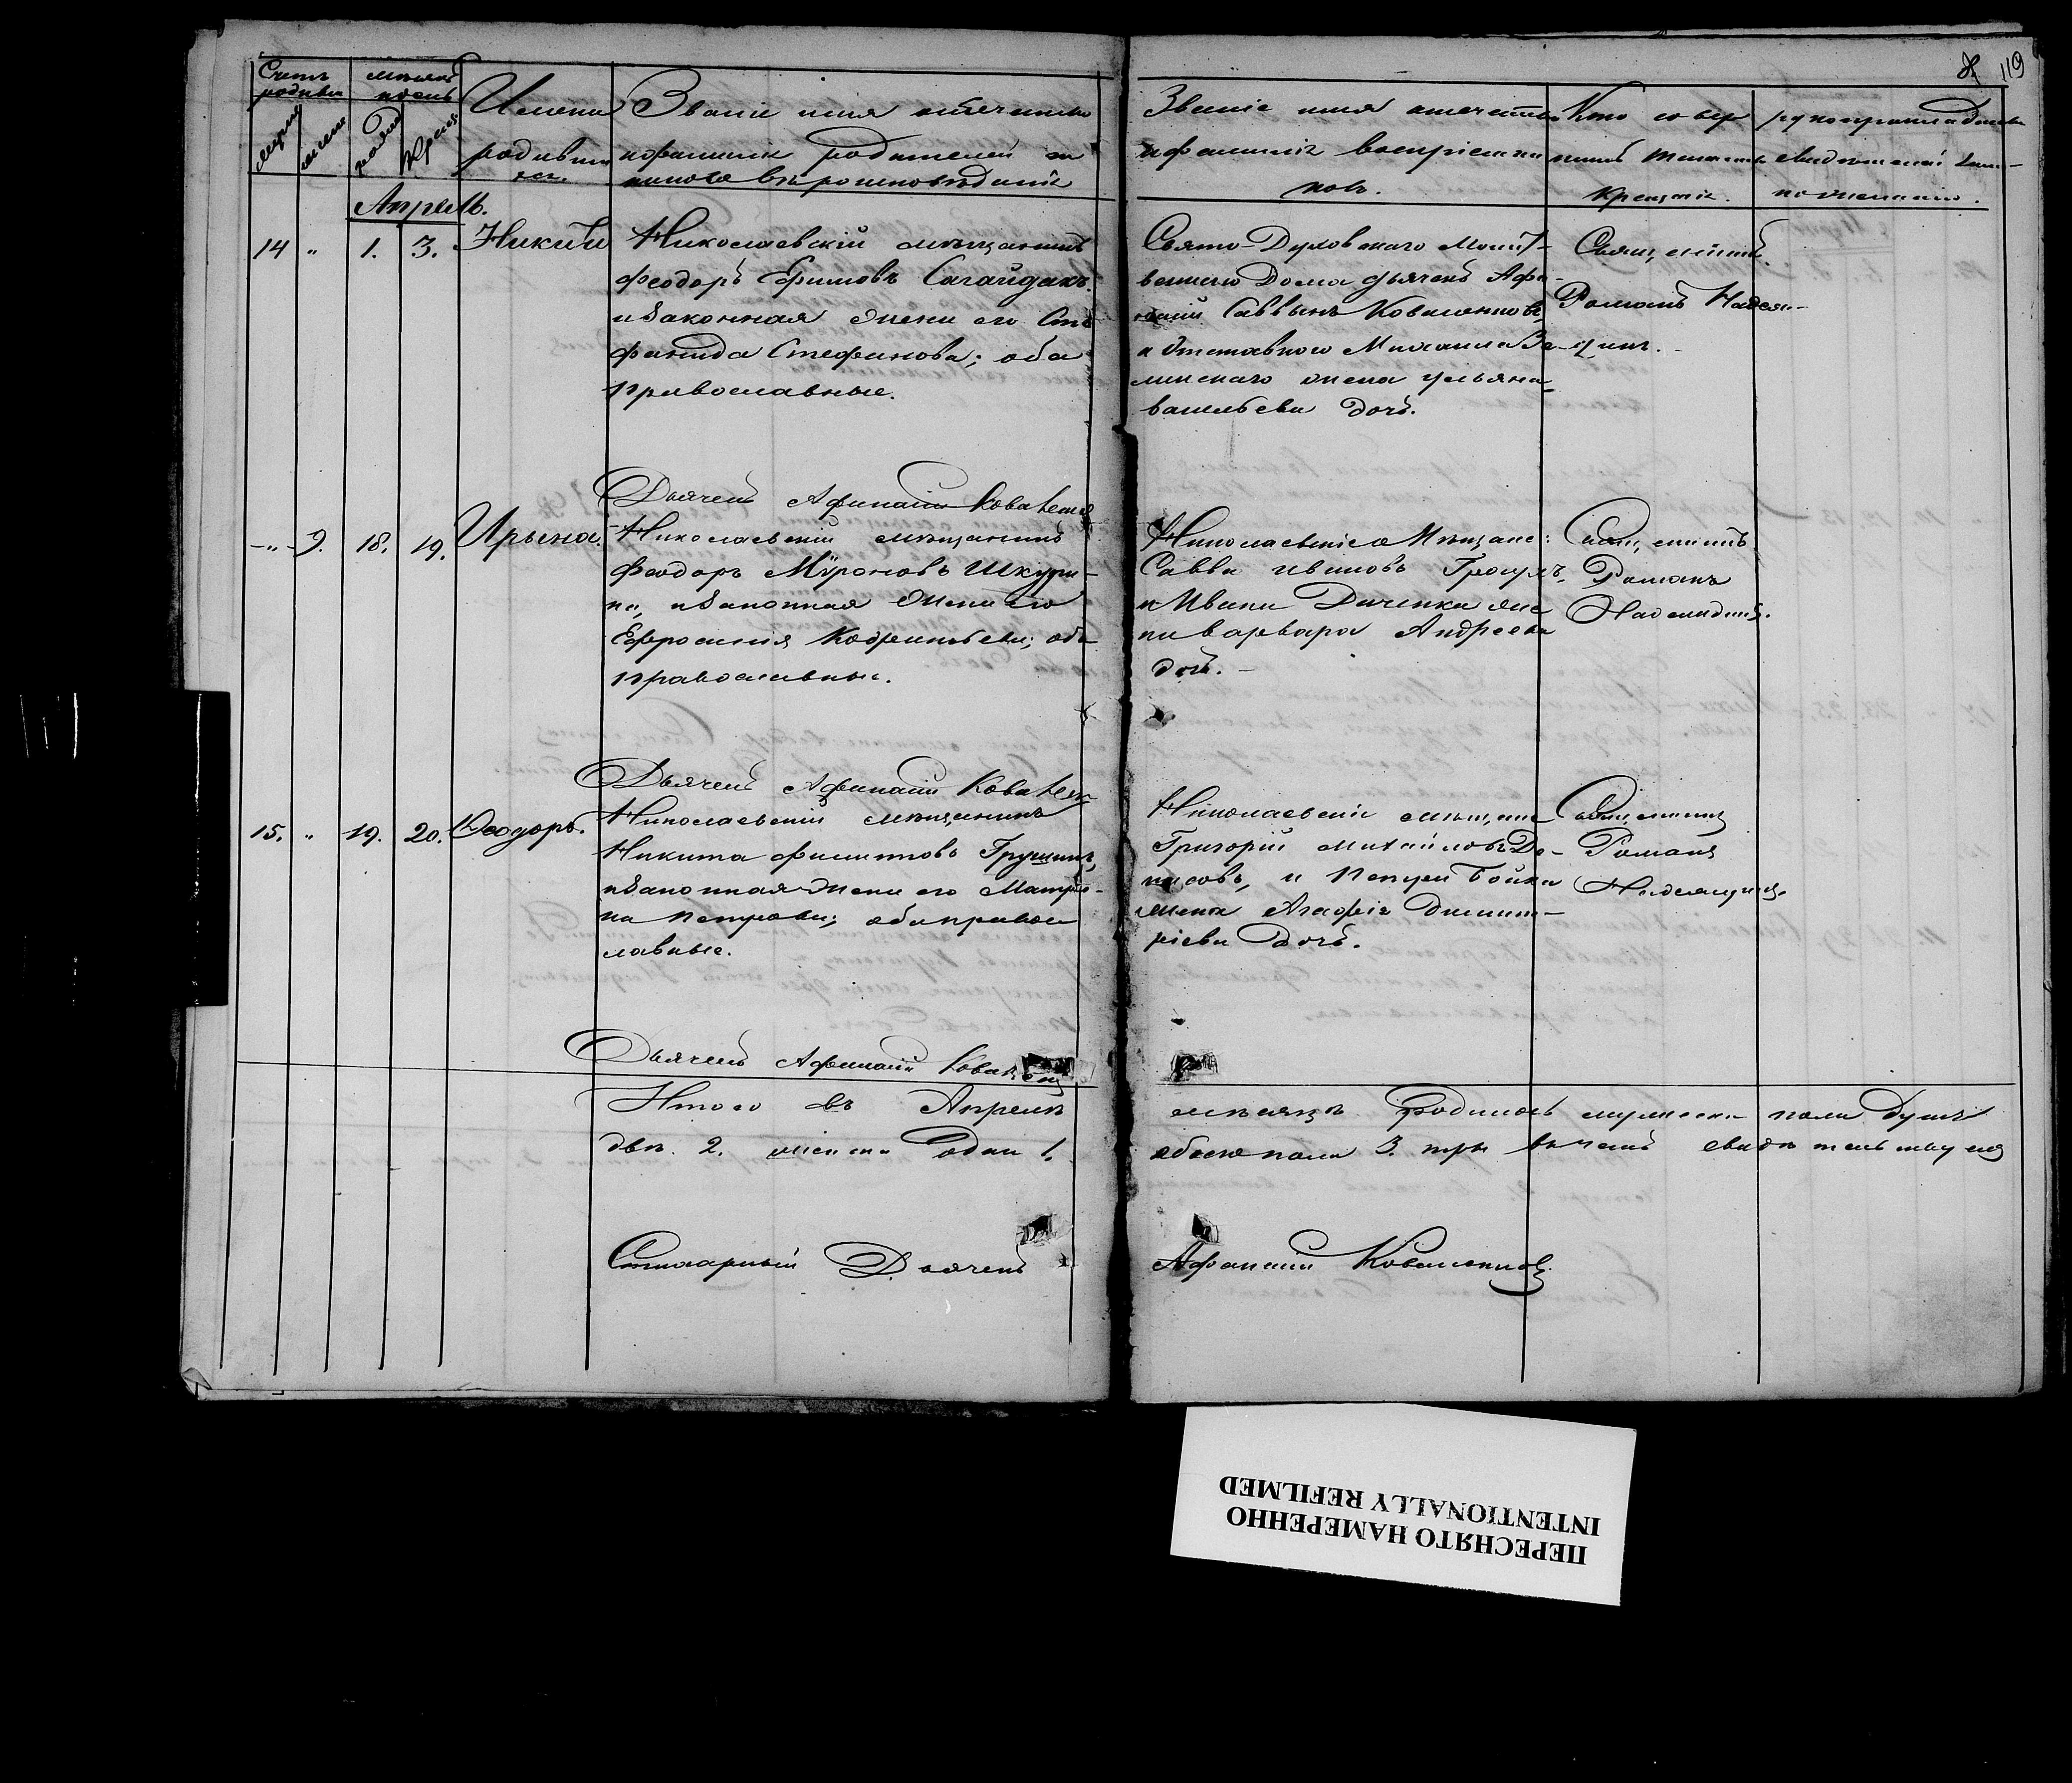 119
Счетъ родивш
мѣсяцъ и день
Имена родивших ся.
Званіе имя отечество и фамилія родителей и какого вѣроисповѣданія
Званіе имя отечество и фамилія воспріемни ковъ.
Кто совер шилъ таинство крещенія.
рукоприкладство свидѣтелей запи по желанію.
муж
жен
рожд
крещ.
Апрель.
14 " 1. 3. Никита
Николаевскій мѣщанинъ
Феодоръ Ефимовъ Сагайдакъ
и Законная жена его Сте
фанида Стефанова; оба
православные.
Свято-Духовскаго Молит-
веннаго Дома дьячекъ Афа
насій Саввинъ Коваленковъ,
и Отставнаго Михаила За
линскаго жена Ульяна
васильева дочь.
Священникъ
Романъ Надеж-
динъ.
Дьячекъ Афанасій Ковален
-"- 9. 18. 19. Ирына.
Николаевскій мѣщанинъ
Феодоръ Мѵроновъ Шкури-
на, и Законная Жена его
Ефросинія; оба
православные.
Николаевскіе Мѣщане:
Савва ивановъ
и Ивана Даченка же
на варвара Андреева
дочь. -
Священникъ
Романъ
Надеждинъ.
Дьячекъ Афанасій Ковален
15. " 19. 20. Феодоръ.
Николаевскій мѣщанинъ
Никита Филиповъ
и Законная Жена его Матро-
на Петрова; оба правос
лавные.
Николаевскіе мѣщане
Григорій михайловъ Де-
нисовъ, и Петра Бойка
жена Агафія Димит-
ріева Дочь.
Священникъ
Романъ
Надеждинъ.
Дьячекъ Афанасій Ковален
Итого въ Апрелѣ мѣсяцѣ родилось мужеска пола душъ
двѣ. 2. женска одна 1. обоего пола 3. три въ чемъ свидѣтельствуемъ
Стихарный Дьячекъ Афанасій Коваленковъ.
ПЕРЕСНЯТО НАМЕРЕННО
INTENTIONALLY REFILMED